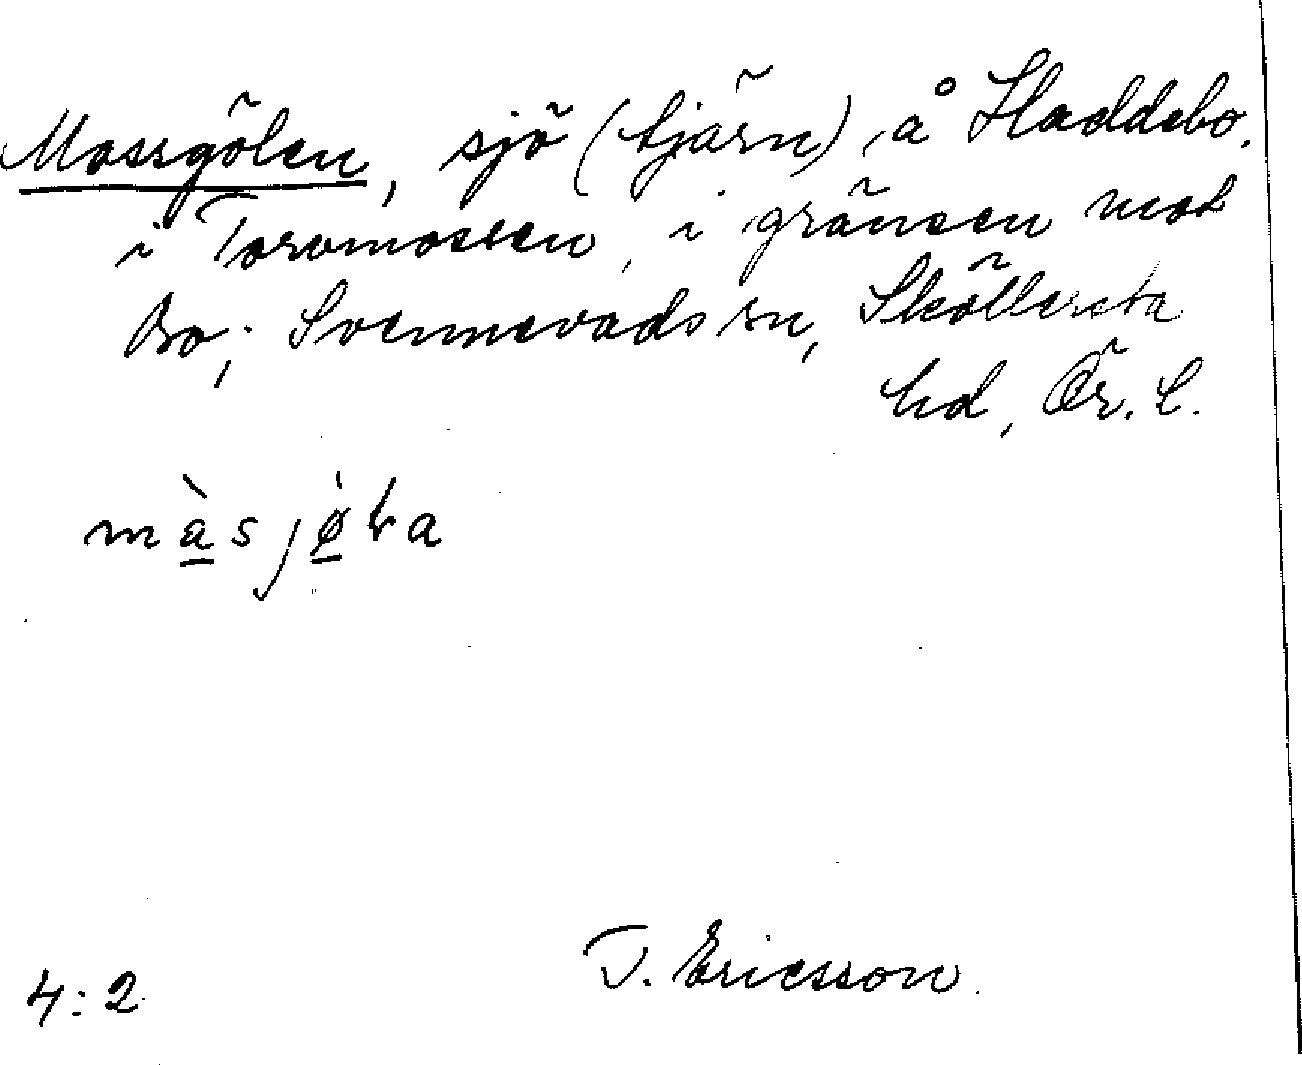 Mossgölen, sjö (tjärn) å Haddebo,
i Toromossen, i gränsen mot
Bo; Svennevads sn, Sköllersta
hd, Ör. l.
màsjø̀ɫa
4:2 T. Ericsson